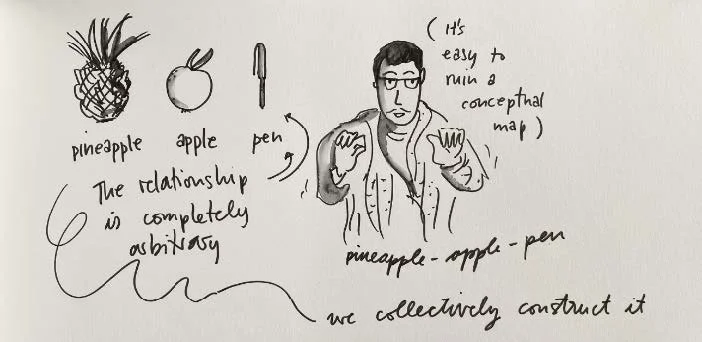 pineapple apple pen
The relationship
is completely
arbitrary
(It's
easy to
ruin a
conceptual
map)
pineapple - apple - pen
we collectively construct it